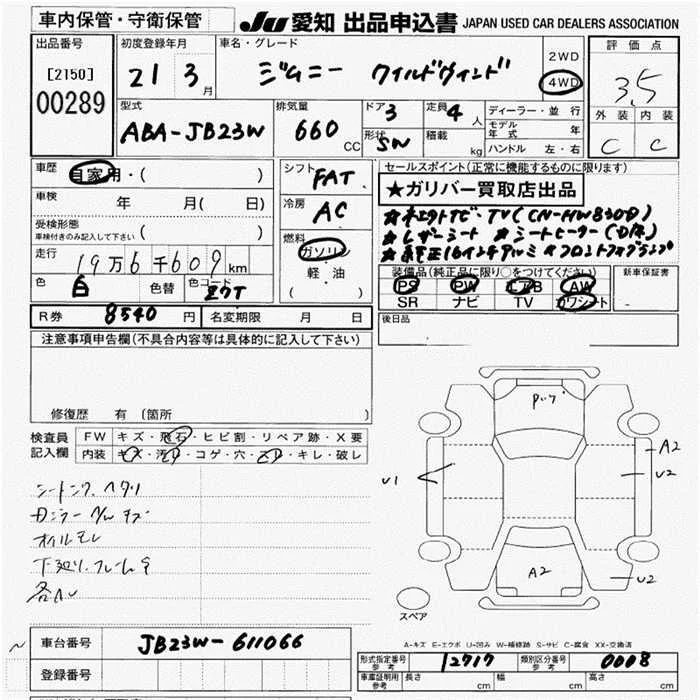 車内保管・守衛保管
JU 愛知 出品申込書 JAPAN USED CAR DEALERS ASSOCIATION
出品番号 初度登録年月 車名・グレード 2WD 評価点
[2150] 21 3月 ジムニー ワイルドウインド 4WD 3.5
00289
型式 排気量 ドア 3 定員 4人 ディーラー・並行 外装 内装
ABA-JB23W 660cc 形状 SW 積載 kg モデル年式 年 C C
ハンドル 左・右
車歴 自家用・( ) シフト FAT セールスポイント(正常に機能するものに限ります)
車検 年 月( 日) 冷房 AC ★ガリバー買取店出品
受検形態 ★ TV(CN-HW830D)
車検付きのみ記入して下さい( ) 燃料 ★レザーシート ★シートヒーター
走行 19万6千609km ガソリン ★純正16インチアルミ ★フロントフォグランプ
色 白 色替 色コード 軽油 装備品(純正品に限り○をつけてください) 新車保証書
( ) PS PW エアB AW -
SR ナビ TV カワシート
R券 8540円 名変期限 月 日 後日品
注意事項申告欄(不具合内容等は具体的に記入して下さい)
修復歴 有(箇所
検査員 FW キズ・飛石・ヒビ割・リペア跡・X要
記入欄 内装 キズ・汚レ・コゲ・穴・スレ・キレ・破レ
A2
U1 U2
オイルモレ
下廻り・フレームサ
A2 U2
スペア
A-キズ E-エクボ U-凹み W-補修跡 S-サビ C-腐食 XX-交換済
車台番号 JB23W-611066
形式指定番号 参考 12717 類別区分番号 参考 0008
登録番号 車庫証明用 参考 長さ cm 幅 cm 高さ cm